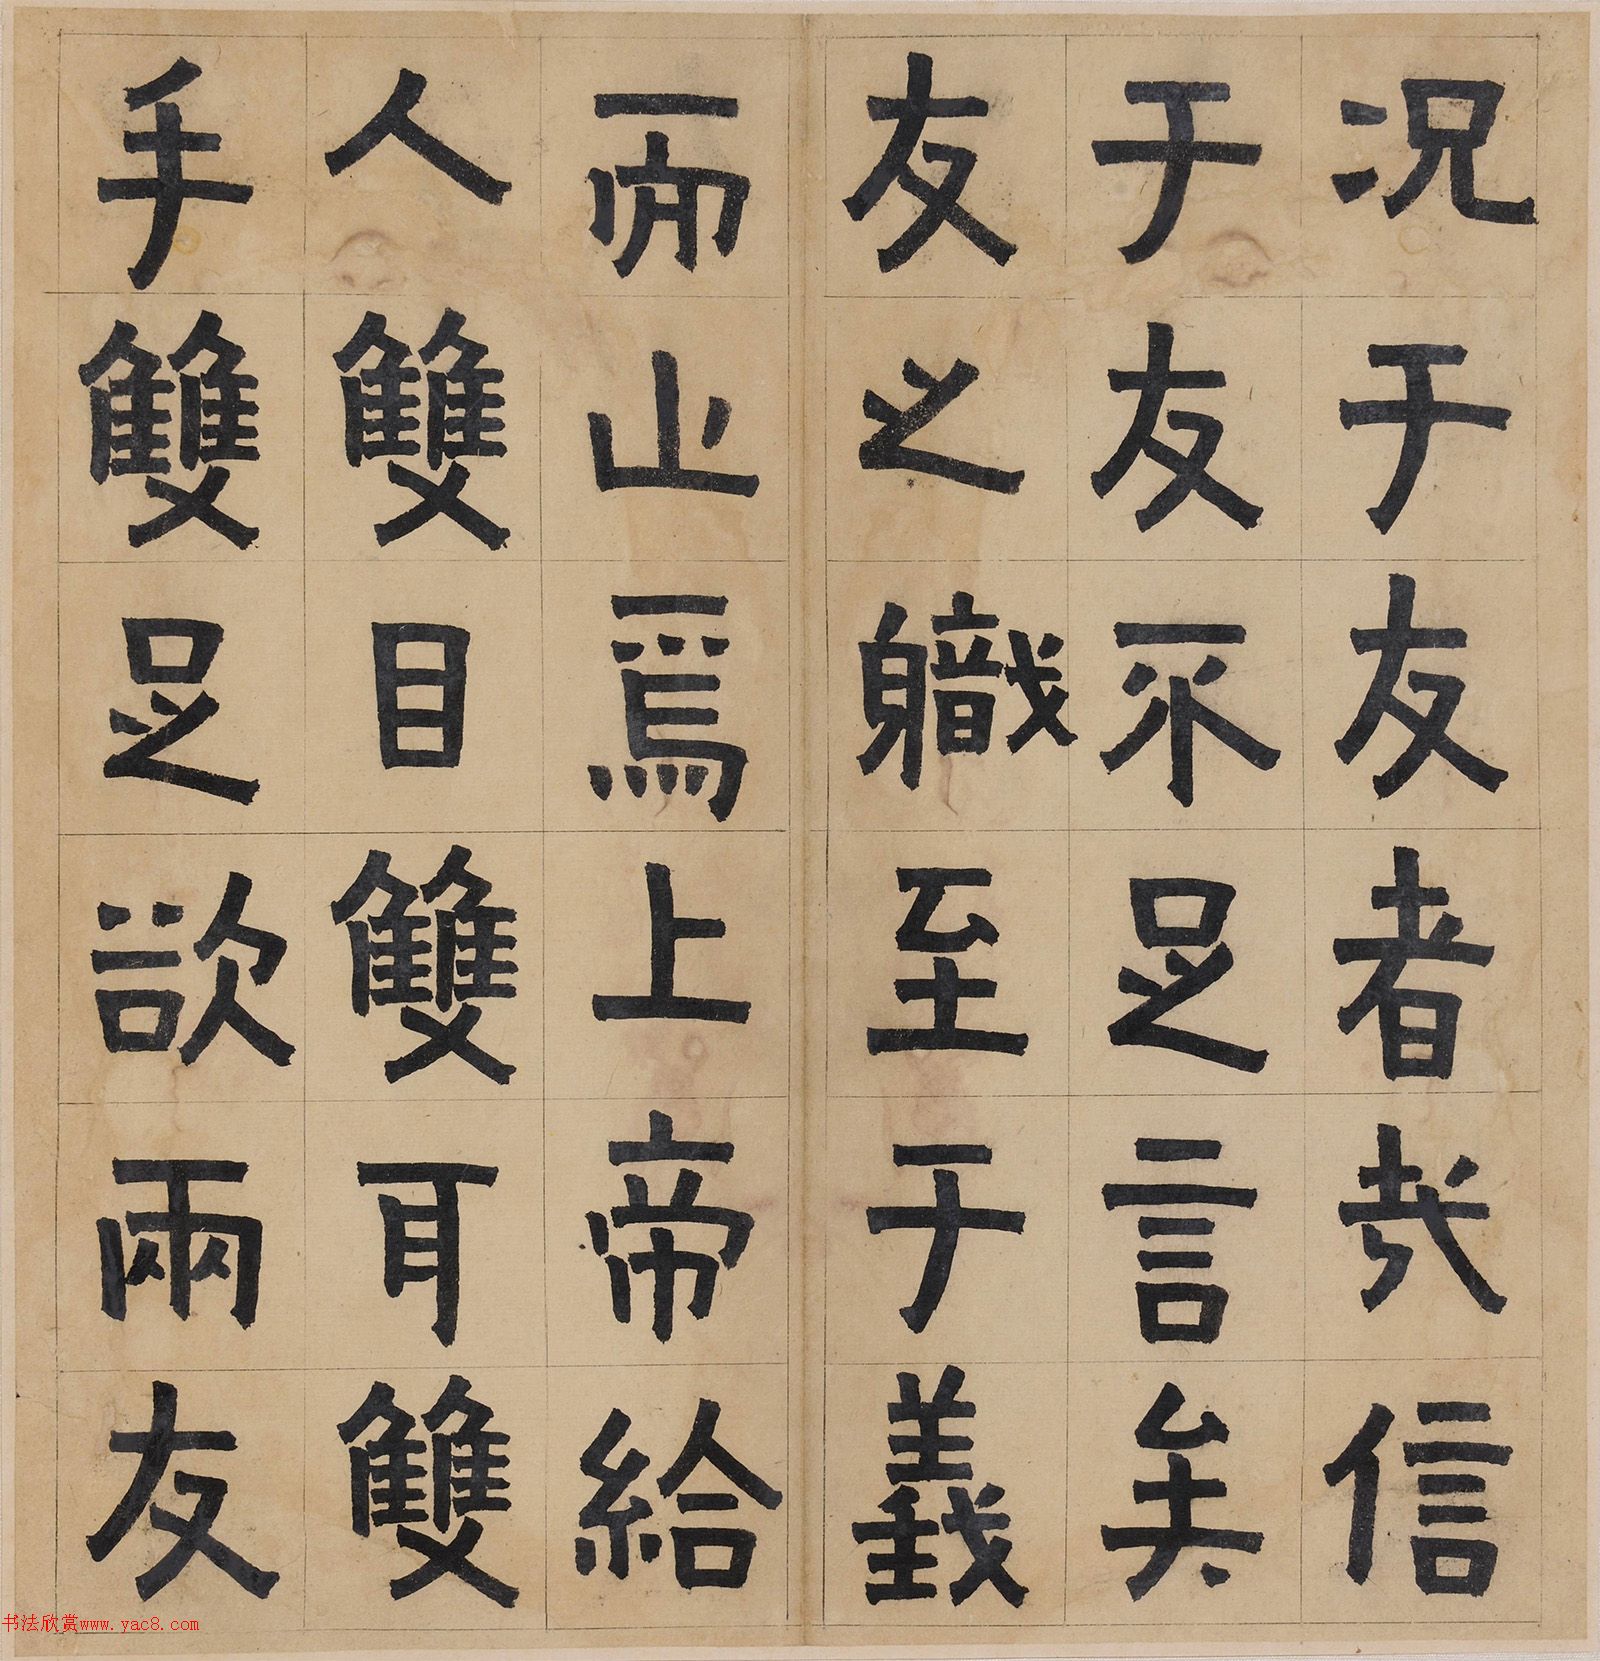 况于友者哉信
于友不足言矣
友之職至于義
而止焉上帝給
人雙目雙耳雙
手雙足欲兩友
书法欣赏www.yac8.com